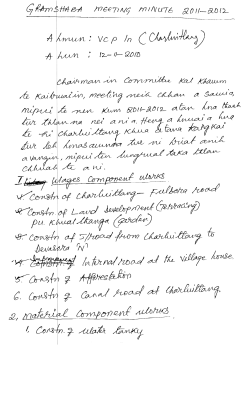 GRAMSHABA MEETING MINUTE 2011-2012
Ahmun: VCP In (Charluitlang)
A hun : 12-11-2010
Chairman in Committee Kal Khawm
te Kaibualin, meeting neih chhan a sawia,
mipui te nen Kum 2011-2012 atan hna thawh
tur thlan na nei ani a, Heng a hnuai a hna
te hi Charluitlang Khua leh
tur leh hmasawnna tur ni ani
a, mipui ten lungrual taka thlan
chhuah te ani.
1. Wages Component works
1. Constn of Charluitlang – road
2. Constn of Land development (Terracing)
pu Khualthanga (garden)
3. Constn of J/road from Charluitlang to
'N'
4. Internal road at the village house
5. Constn of Afforestation
6. Constn of Canal road at Charluitlang
2. Material Component works
1. Constn of water tanky